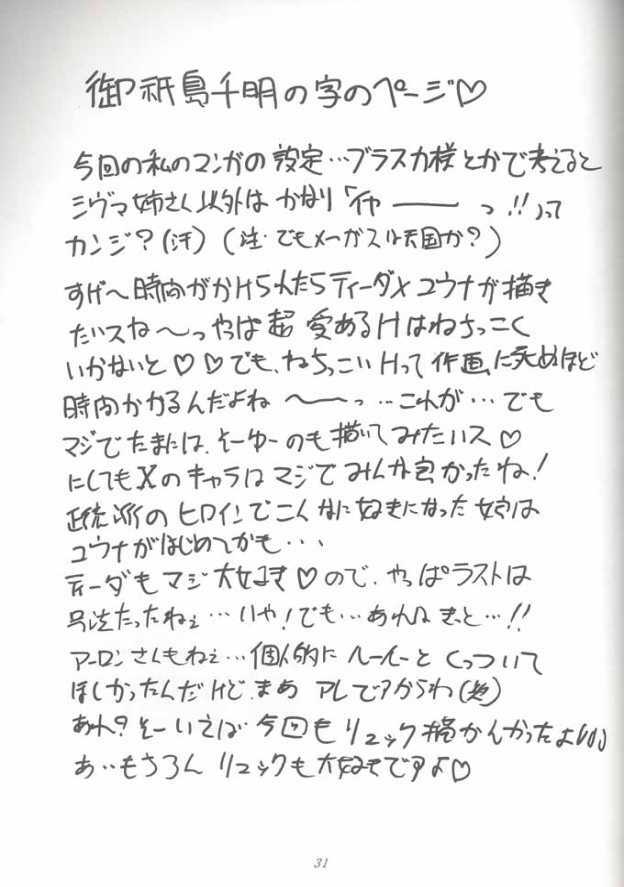 御祇島千明の字のページ♡
今回の私のマンガの設定…ブラスカ様とかで考えると
シヴァ姉さん以外はかなり「イヤーーっ!!」って
カンジ?(汗)(注・でもメーガスは天国か?)
すげ〜時間がかけられたらティーダ×ユウナが描き
たいスね〜っやっぱ超愛あるHはねちっこく
いかないと♡♡でも、ねちっこいHって作画に死ぬほど
時間かかるんだよね〜ーっ…これが…でも
マジでたまには、そーゆーのも描いてみたいス♡
にしてもXのキャラはマジでみんな良かったね!
正統派のヒロインでこんなに好きになった娘は
ユウナがはじめてかも・・・
ティーダもマジ大好き♡ので、やっぱラストは
号泣だったねぇ…いや!でも…あれはきっと…!!
アーロンさんもねぇ…個人的にルールーとくっついて
ほしかったんだけど、まあアレですからね
あれ?そーいえば今回もリュック描かんかったよ
あ・・もちろんリュックも大好きですよ♡
31